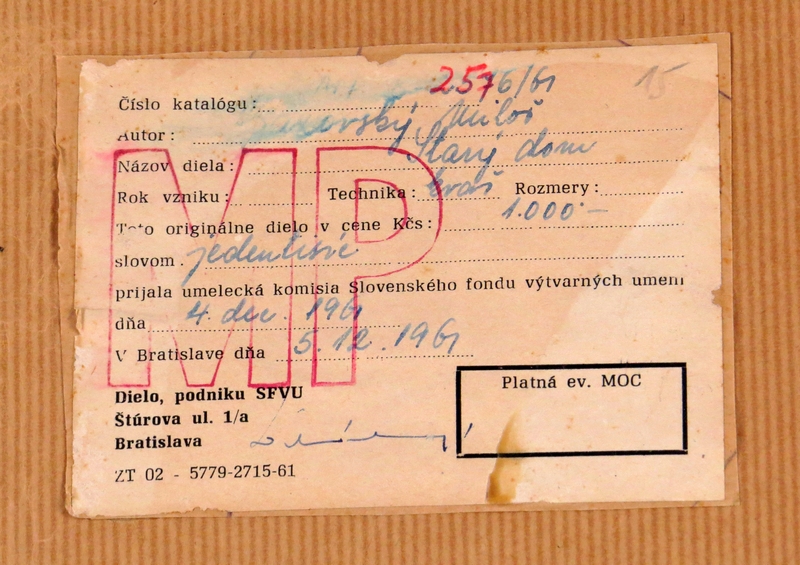 15
Číslo katalógu: 2576/61
Autor: Miloš
Názov diela: Starý dom
Rok vzniku: Technika: kvaš Rozmery:
Toto originálne dielo v cene Kčs: 1.000.—
slovom jedentisíc
prijala umelecká komisia Slovenského fondu výtvarných umení
dňa 4. dec. 1961
V Bratislave dňa 5. 12. 1961
MP
Dielo, podniku SFVU
Štúrova ul. 1/a
Bratislava
Platná ev. MOC
ZT 02 - 5779-2715-61